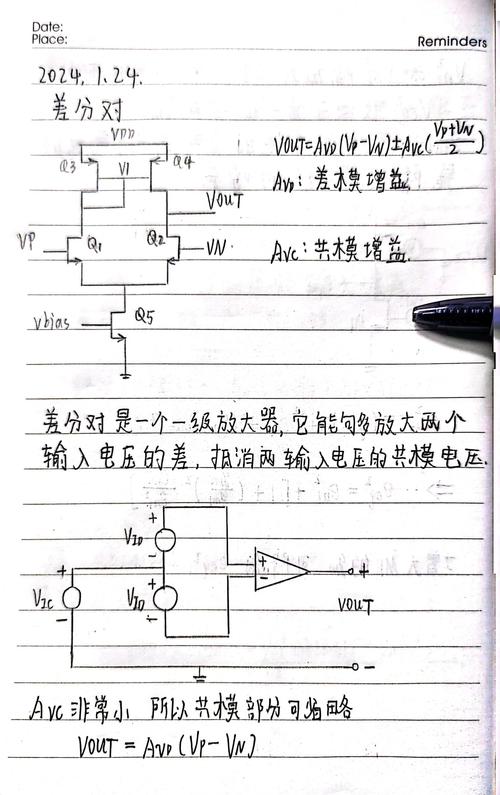 Date:
Place:
Reminders
2024.1.24.
差分对
VDD
Q3 V1 Q4
VOUT
VP Q1 Q2 VN
vbias Q5
VOUT=AVD(VP-VN)±AVC(VP+VN/2)
AVD: 差模增益
AVC: 共模增益.
差分对是一个一级放大器,它能够多放大两个
输入电压的差, 抵消两输入电压的共模电压.
+
VID
-
+ +
VIC VID
- -
+
-
+
VOUT
-
AVC非常小 所以共模部分可忽略
VOUT = AVD (VP-VN)